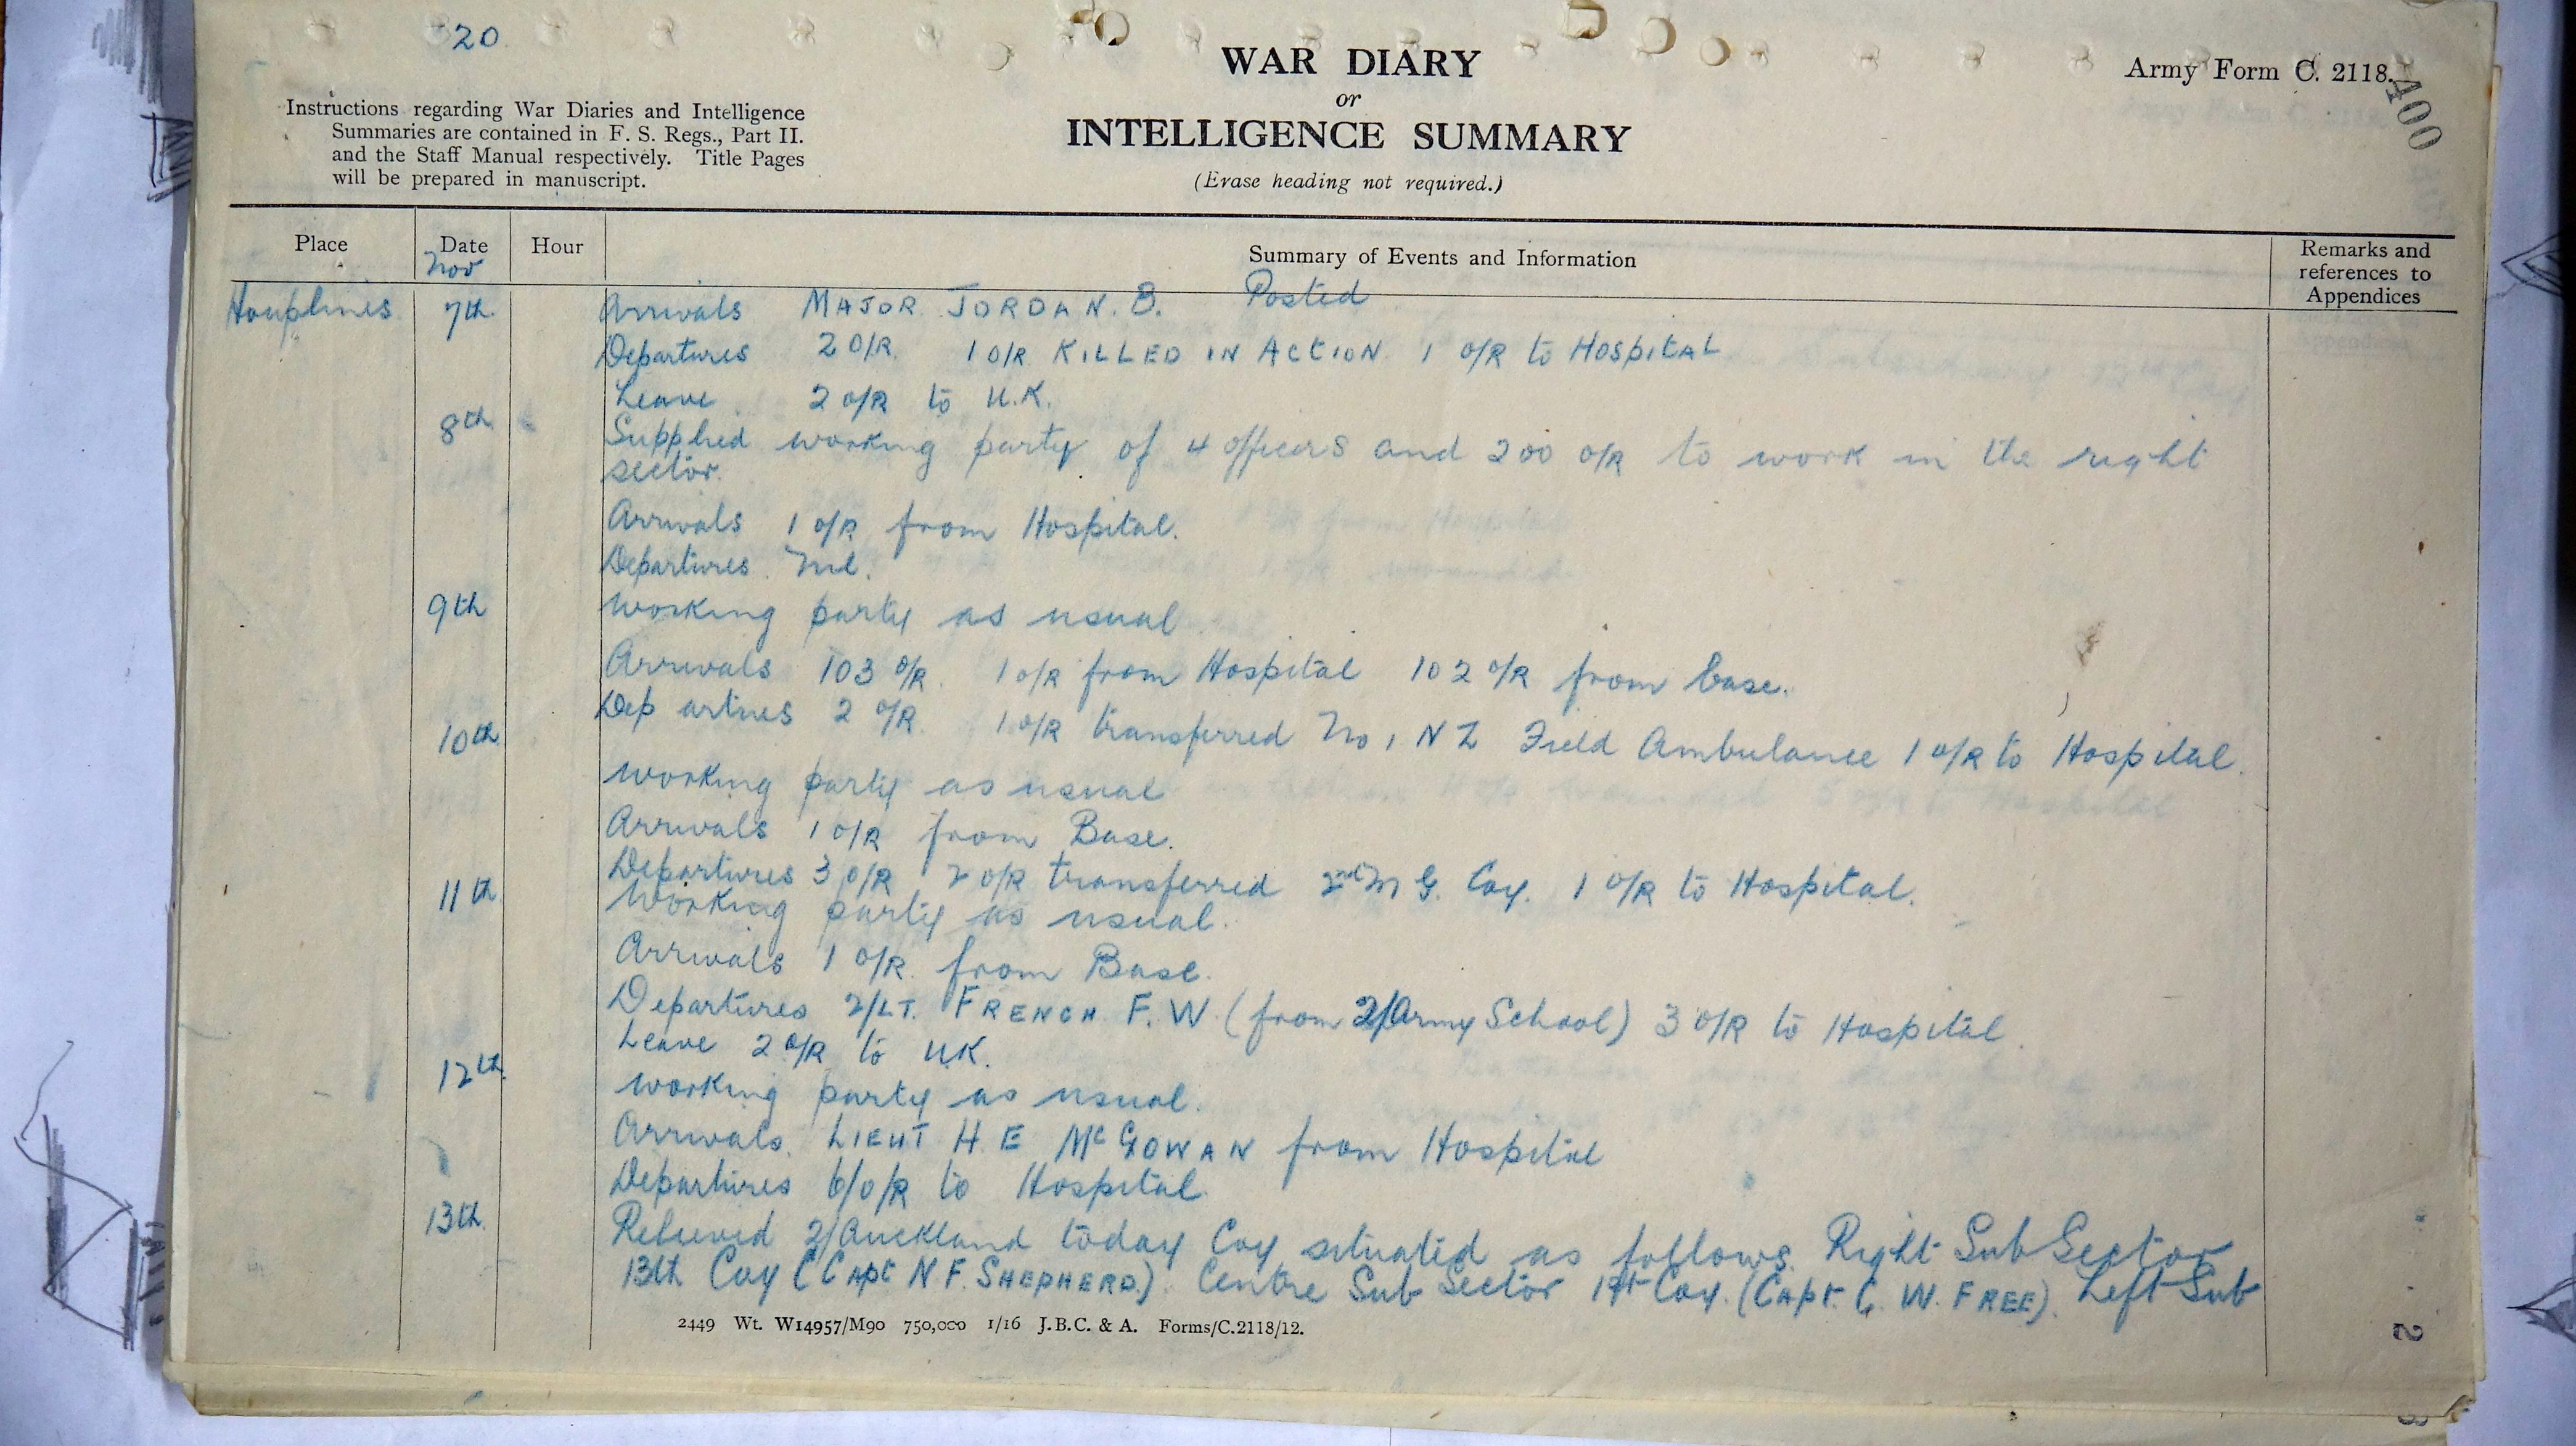 20
WAR DIARY
or
INTELLIGENCE SUMMARY
(Erase heading not required.)
Army Form C. 2118.
400
Instructions regarding War Diaries and Intelligence
Summaries are contained in F. S. Regs., Part II.
and the Staff Manual respectively. Title Pages
will be prepared in manuscript.
Place Date Hour Summary of Events and Information Remarks and references to Appendices
Nov
Houplines 7th Arrivals MAJOR JORDAN. B. Posted
Departures 2 O/R. 1 O/R KILLED IN ACTION 1 O/R to HOSPITAL
Leave 2 O/R to U.K.
8th Supplied working party of 4 officers and 200 O/R to work in the right
sector.
Arrivals 1 O/R from Hospital.
Departures Nil.
9th Working party as usual
Arrivals 103 O/R. 1 O/R from Hospital 102 O/R from base.
Departures 2 O/R 1 O/R transferred No 1 NZ Field Ambulance 1 O/R to Hospital.
10th Working party as usual
Arrivals 1 O/R from Base.
Departures 3 O/R 2 O/R transferred 2nd M G. Coy. 1 O/R to Hospital.
11th Working party as usual.
Arrivals 1 O/R from Base.
Departures 2/LT. FRENCH F. W. (from 2/Army School) 3 O/R to Hospital.
Leave 2 O/R to UK.
12th Working party as usual.
Arrivals. LIEUT H E McGOWAN from Hospital
Departures 6/O/R to Hospital
13th Relieved 2/Auckland today Coy situated as follows. Right Sub Sector
13th Coy (CAPT N F. SHEPHERD.) Centre Sub Sector 1st Coy. (CAPT. C. W. FREE). Left Sub
2449 Wt. W14957/M90 750,000 1/16 J.B.C. & A. Forms/C.2118/12.
2